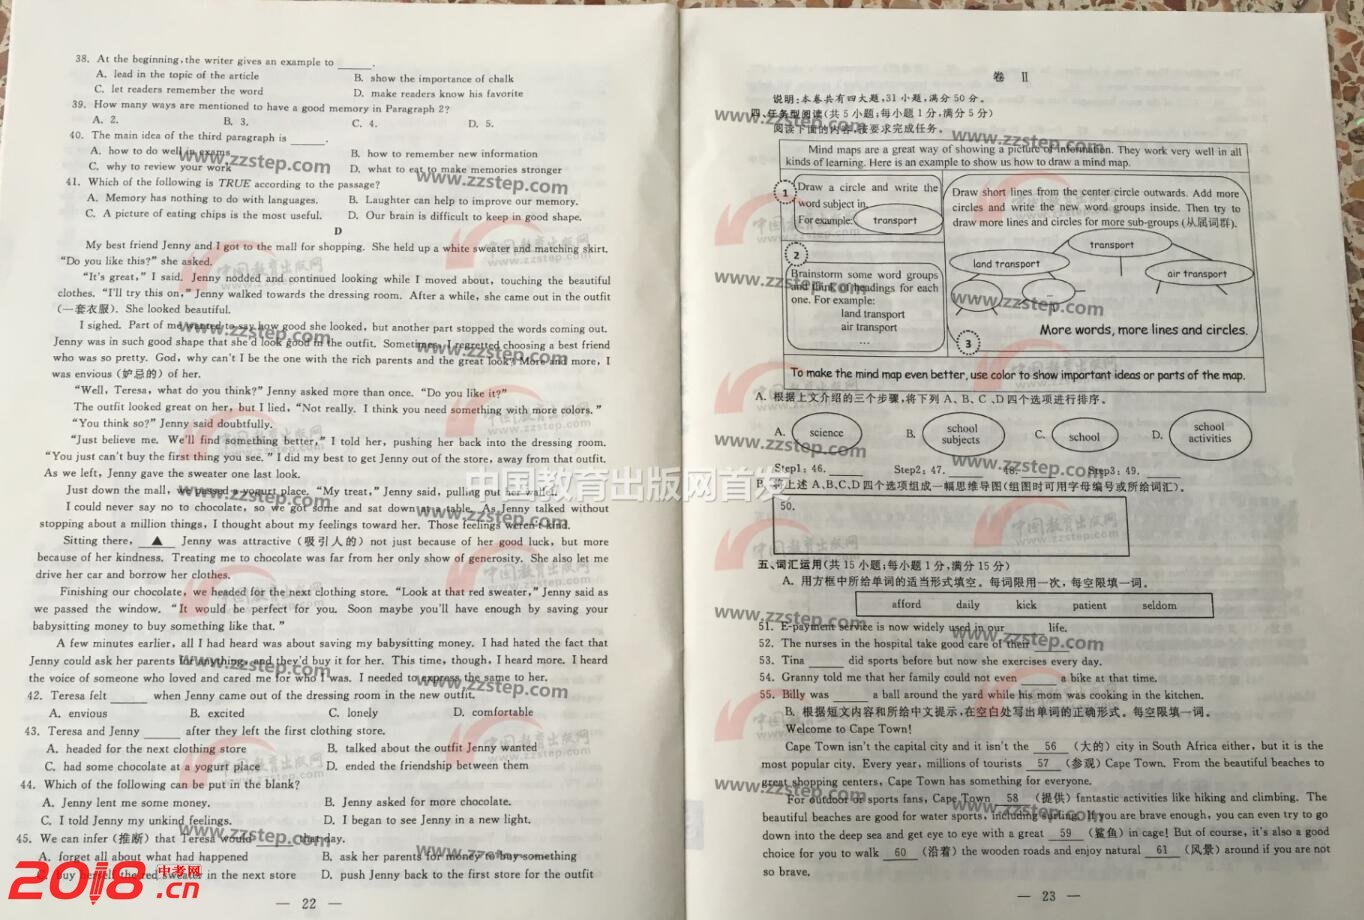 38. At the beginning, the writer gives an example to ______.
A. lead in the topic of the article
B. show the importance of chalk
C. let readers remember the word
D. make readers know his favorite
39. How many ways are mentioned to have a good memory in Paragraph 2?
A. 2. B. 3. C. 4. D. 5.
40. The main idea of the third paragraph is ______.
A. how to do well in exams
B. how to remember new information
C. why to review your work
D. what to eat to make memories stronger
41. Which of the following is TRUE according to the passage?
A. Memory has nothing to do with languages.
B. Laughter can help to improve our memory.
C. A picture of eating chips is the most useful.
D. Our brain is difficult to keep in good shape.
D
My best friend Jenny and I got to the mall for shopping. She held up a white sweater and matching skirt.
“Do you like this?” she asked.
“It's great,” I said. Jenny nodded and continued looking while I moved about, touching the beautiful
clothes. “I'll try this on,” Jenny walked towards the dressing room. After a while, she came out in the outfit
(一套衣服). She looked beautiful.
I sighed. Part of me wanted to say how good she looked, but another part stopped the words coming out.
Jenny was in such good shape that she'd look good in the outfit. Sometimes, I regretted choosing a best friend
who was so pretty. God, why can't I be the one with the rich parents and the great look? More and more, I
was envious (妒忌的) of her.
“Well, Teresa, what do you think?” Jenny asked more than once. “Do you like it?”
The outfit looked great on her, but I lied, “Not really. I think you need something with more colors.”
“You think so?” Jenny said doubtfully.
“Just believe me. We'll find something better,” I told her, pushing her back into the dressing room.
“You just can't buy the first thing you see.” I did my best to get Jenny out of the store, away from that outfit.
As we left, Jenny gave the sweater one last look.
Just down the mall, we passed a yogurt place. “My treat,” Jenny said, pulling out her wallet.
I could never say no to chocolate, so we got some and sat down at a table. As Jenny talked without
stopping about a million things, I thought about my feelings toward her. Those feelings weren't kind.
Sitting there, ▲ Jenny was attractive (吸引人的) not just because of her good luck, but more
because of her kindness. Treating me to chocolate was far from her only show of generosity. She also let me
drive her car and borrow her clothes.
Finishing our chocolate, we headed for the next clothing store. “Look at that red sweater,” Jenny said as
we passed the window. “It would be perfect for you. Soon maybe you'll have enough by saving your
babysitting money to buy something like that.”
A few minutes earlier, all I had heard was about saving my babysitting money. I had hated the fact that
Jenny could ask her parents for anything, and they'd buy it for her. This time, though, I heard more. I heard
the voice of someone who loved and cared me for who I was. I needed to express the same to her.
42. Teresa felt ______ when Jenny came out of the dressing room in the new outfit.
A. envious B. excited C. lonely D. comfortable
43. Teresa and Jenny ______ after they left the first clothing store.
A. headed for the next clothing store
B. talked about the outfit Jenny wanted
C. had some chocolate at a yogurt place
D. ended the friendship between them
44. Which of the following can be put in the blank?
A. Jenny lent me some money.
B. Jenny asked for more chocolate.
C. I told Jenny my unkind feelings.
D. I began to see Jenny in a new light.
45. We can infer (推断) that Teresa would ______ that day.
A. forget all about what had happened
B. ask her parents for money to buy something
C. buy herself the red sweater in the next store
D. push Jenny back to the first store for the outfit
— 22 —
卷 Ⅱ
说明:本卷共有四大题,31小题,满分50分。
四、任务型阅读(共5小题;每小题1分,满分5分)
阅读下面的内容,按要求完成任务。
Mind maps are a great way of showing a picture of information. They work very well in all
kinds of learning. Here is an example to show us how to draw a mind map.
1
Draw a circle and write the
word subject in.
For example: transport
2
Brainstorm some word groups
and think of headings for each
one. For example:
land transport
air transport
...
Draw short lines from the center circle outwards. Add more
circles and write the new word groups inside. Then try to
draw more lines and circles for more sub-groups (从属词群).
transport
land transport
air transport
More words, more lines and circles.
3
To make the mind map even better, use color to show important ideas or parts of the map.
A. 根据上文介绍的三个步骤,将下列A、B、C、D四个选项进行排序。
A. science B. school subjects C. school D. school activities
Step1: 46. ______ Step2: 47. ______ 48. ______ Step3: 49. ______
B. 将上述A,B,C,D四个选项组成一幅思维导图(组图时可用字母编号或所给词汇)。
50.
五、词汇运用(共15小题;每小题1分,满分15分)
A. 用方框中所给单词的适当形式填空。每词限用一次,每空限填一词。
afford daily kick patient seldom
51. E-payment service is now widely used in our ______ life.
52. The nurses in the hospital take good care of their ______.
53. Tina ______ did sports before but now she exercises every day.
54. Granny told me that her family could not even ______ a bike at that time.
55. Billy was ______ a ball around the yard while his mom was cooking in the kitchen.
B. 根据短文内容和所给中文提示,在空白处写出单词的正确形式。每空限填一词。
Welcome to Cape Town!
Cape Town isn't the capital city and it isn't the 56 (大的) city in South Africa either, but it is the
most popular city. Every year, millions of tourists 57 (参观) Cape Town. From the beautiful beaches to
great shopping centers, Cape Town has something for everyone.
For outdoor or sports fans, Cape Town 58 (提供) fantastic activities like hiking and climbing. The
beautiful beaches are good for water sports, including surfing. If you are brave enough, you can even try to go
down into the deep sea and get eye to eye with a great 59 (鲨鱼) in cage! But of course, it's also a good
choice for you to walk 60 (沿着) the wooden roads and enjoy natural 61 (风景) around if you are not
so brave.
— 23 —
中国教育出版网首发
www.zzstep.com
2018中考网.cn